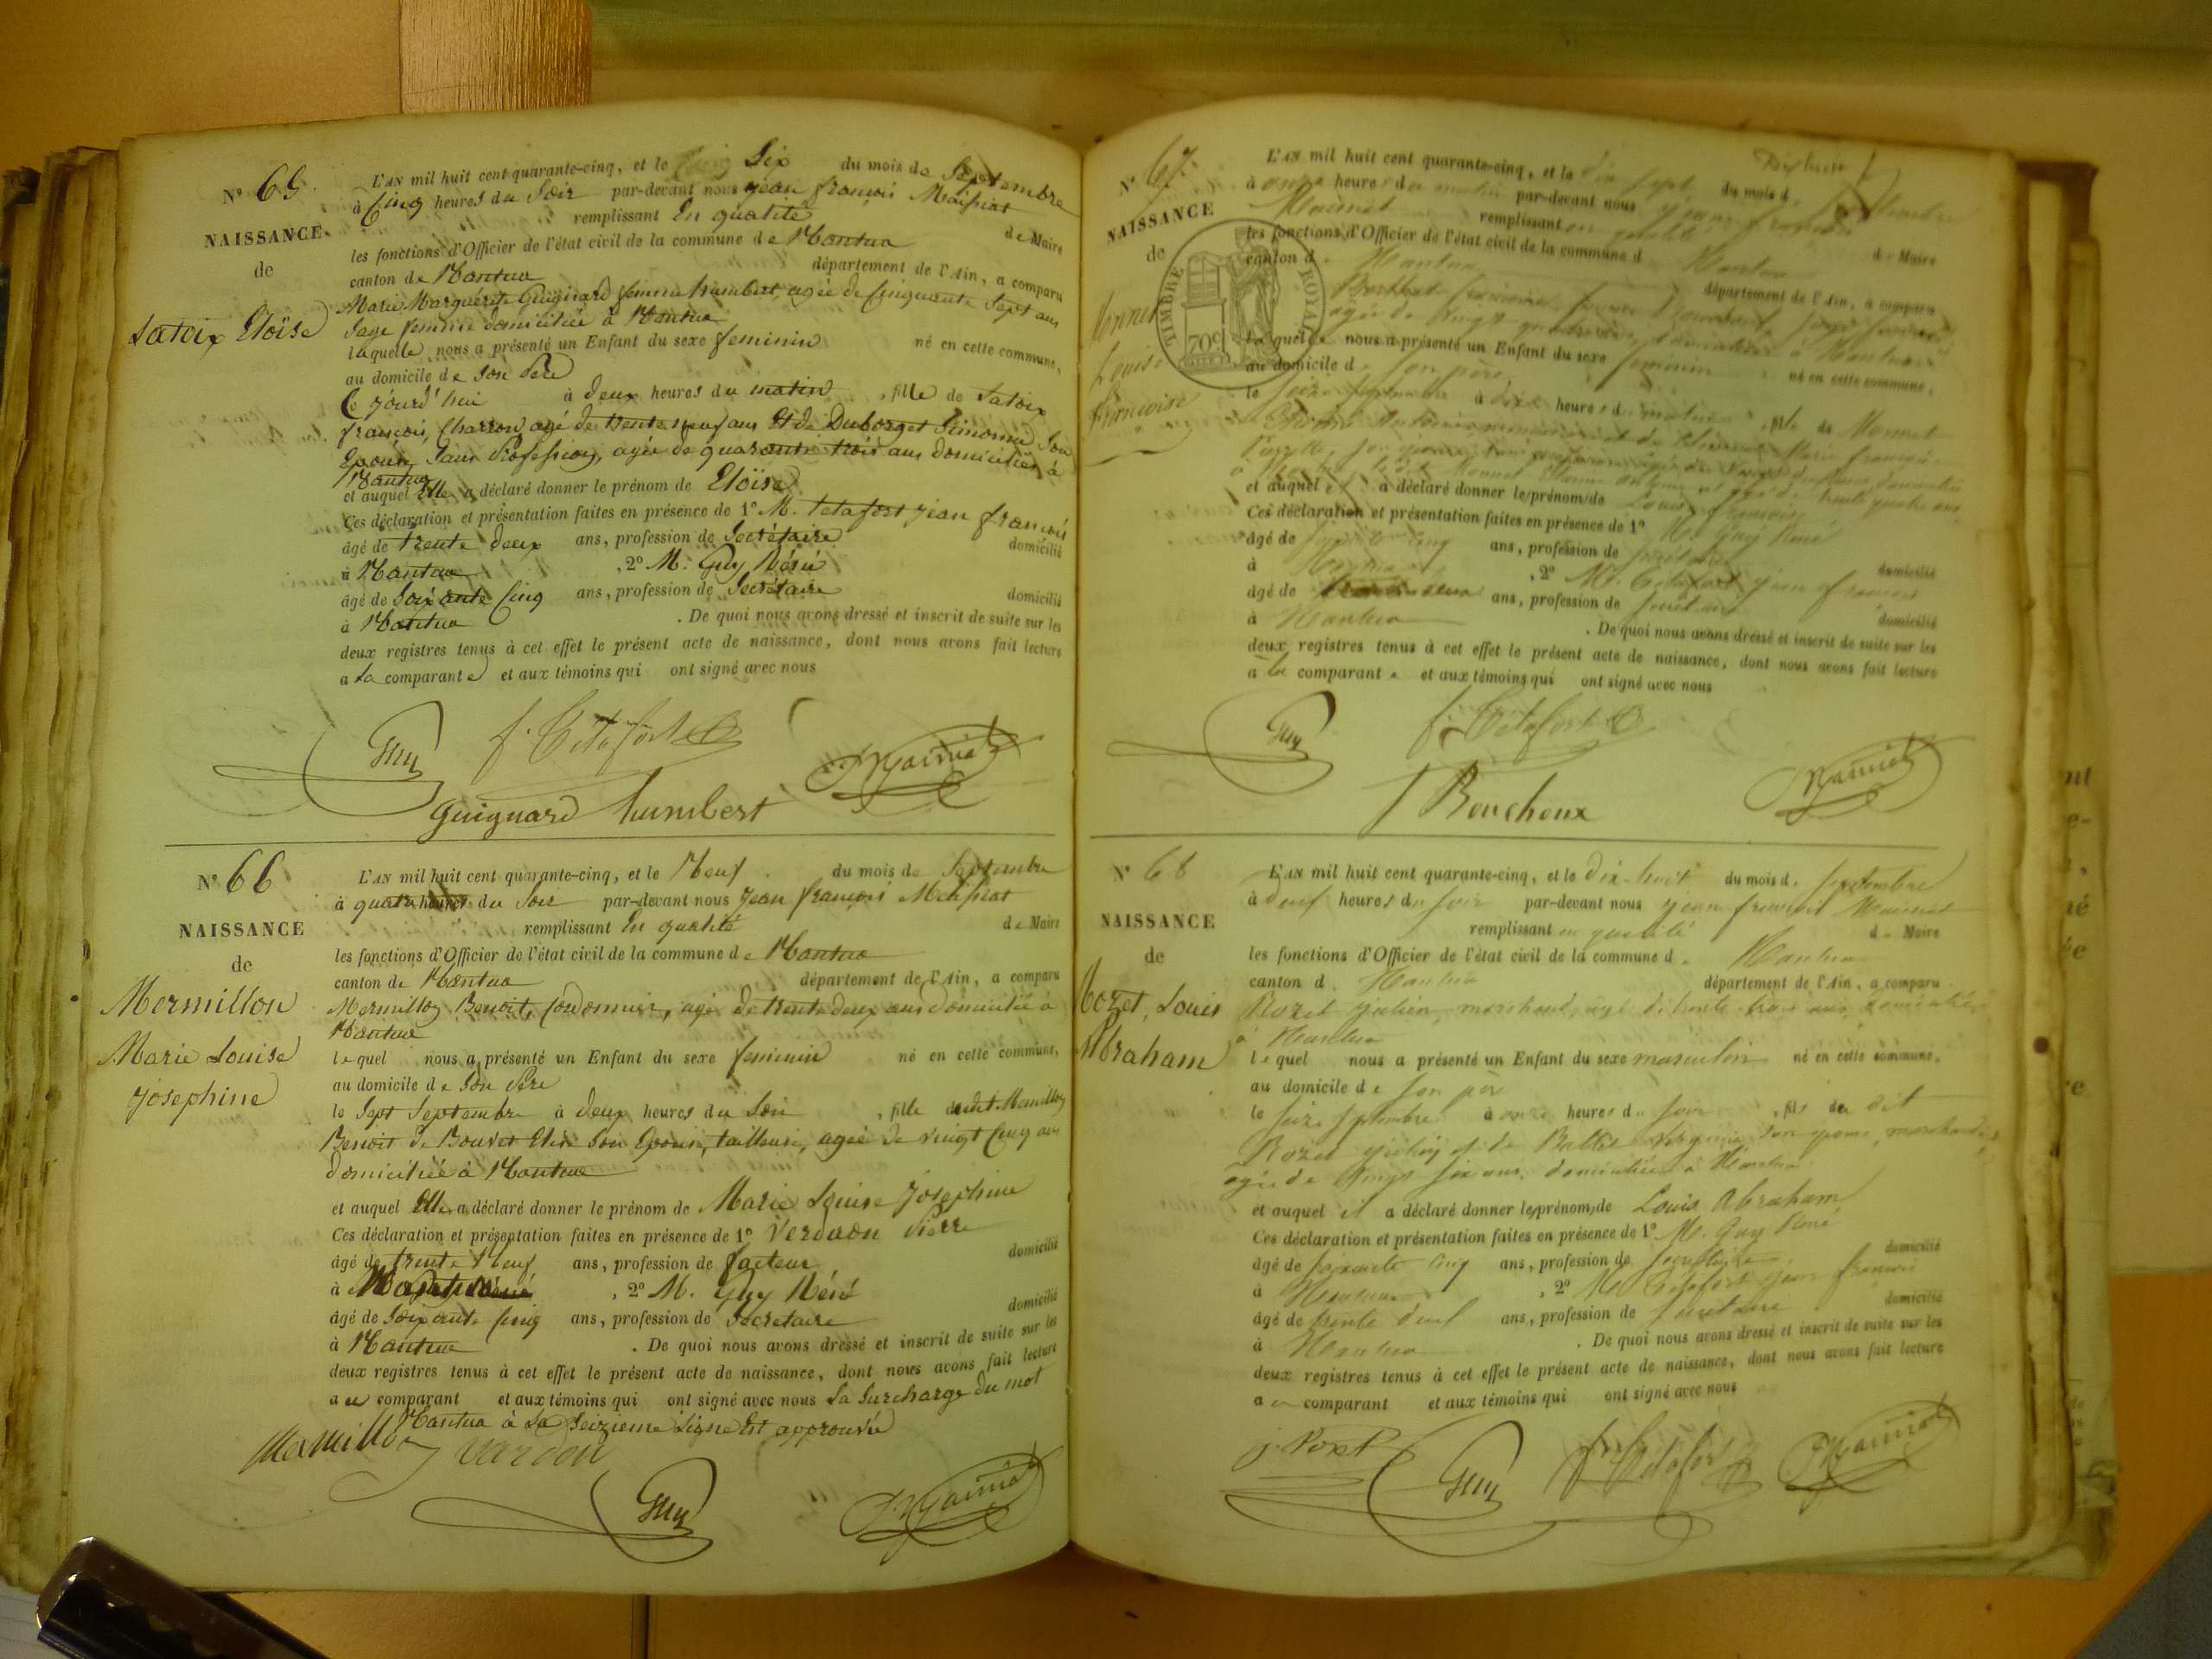 N° 65.
NAISSANCE
de
Latoix Eloïse
L'AN mil huit cent quarante-cinq, et le Six du mois de Septembre
à Cinq heures du Soir par-devant nous Jean françois Maissiat
remplissant En qualité de Maire
les fonctions d'Officier de l'état civil de la commune de Nantua
canton de Nantua département de l'Ain, a comparu
Marie Marguérite Guignard femme humbert, agée de Cinquante Sept ans
Sage femme domiciliée à Nantua
laquelle nous a présenté un Enfant du sexe feminin né en cette commune,
au domicile de Son Père
Ce jourd'hui à deux heures du matin, fille de Latoix
françois, Charron, agé de trente neuf ans Et de Duborget Simonne Son
Epouse, Sans Profession, agée de quarante trois ans domiciliés à
Nantua
et auquel Elle a déclaré donner le prénom de Eloïse
Ces déclaration et présentation faites en présence de 1° M. Tetafort Jean françois
âgé de trente deux ans, profession de Secrétaire domicilié
à Nantua, 2° M. Guy Réné
âgé de Soixante Cinq ans, profession de Secrétaire domicilié
à Nantua. De quoi nous avons dressé et inscrit de suite sur les
deux registres tenus à cet effet le présent acte de naissance, dont nous avons fait lecture
a La comparante et aux témoins qui ont signé avec nous
Guy f. Tetafort JFMaissiat
Guignard humbert
N° 66
NAISSANCE
de
Mermillon
Marie Louise
Josephine
L'AN mil huit cent quarante-cinq, et le Neuf du mois de Septembre
à quatre heures du Soir par-devant nous Jean françois Maissiat
remplissant En qualité de Maire
les fonctions d'Officier de l'état civil de la commune de Nantua
canton de Nantua département de l'Ain, a comparu
Mermillon Benoit, Cordonnier, agé de trente deux ans domicilié à
Nantua
lequel nous a présenté un Enfant du sexe feminin né en cette commune,
au domicile de Son Père
le Sept Septembre à deux heures du Soir, fille dudit Mermillon
Benoit de Bouvet Elise Son Epouse, tailleuse, agée de vingt Cinq ans
domiciliée à Nantua
et auquel Elle a déclaré donner le prénom de Marie Louise Josephine
Ces déclaration et présentation faites en présence de 1° Verdaon Pierre
âgé de trente Neuf ans, profession de facteur domicilié
à Nantua, 2° M. Guy Réné
âgé de Soixante Cinq ans, profession de Secretaire domicilié
à Nantua. De quoi nous avons dressé et inscrit de suite sur les
deux registres tenus à cet effet le présent acte de naissance, dont nous avons fait lecture
au comparant et aux témoins qui ont signé avec nous La Surcharge du mot
Nantua à La Seizieme Ligne Est approuvée
Mermillon verdon
Guy JFMaissiat
N° 67
NAISSANCE
de
Monnet
Louise
françoise
TIMBRE ROYAL
70c
L'AN mil huit cent quarante-cinq, et le dix sept du mois d
à onze heures du matin par-devant nous Jean françois
Maissiat remplissant en qualité de Maire
les fonctions d'Officier de l'état civil de la commune d Nantua
canton d Nantua département de l'Ain, a comparu
agée de domiciliée à Nantua
laquelle nous a présenté un Enfant du sexe feminin né en cette commune,
au domicile d Son père
le Seize Septembre à heures du matin, fille de Monnet
et auquel a déclaré donner le prénom de Louise françoise
Ces déclaration et présentation faites en présence de 1° M. Guy Réné
âgé de Soixante Cinq ans, profession de Secrétaire domicilié
à Nantua, 2° M. Tetafort Jean françois
âgé de trente deux ans, profession de Secrétaire domicilié
à Nantua. De quoi nous avons dressé et inscrit de suite sur les
deux registres tenus à cet effet le présent acte de naissance, dont nous avons fait lecture
a la comparante et aux témoins qui ont signé avec nous
Guy f. Tetafort JFMaissiat
Bouchoux
N° 68
NAISSANCE
de
Rozet, Louis
Abraham
L'AN mil huit cent quarante-cinq, et le Dix-huit du mois d. Septembre
à deux heures du Soir par-devant nous Jean françois Maissiat
remplissant en qualité de Maire
les fonctions d'Officier de l'état civil de la commune d. Nantua
canton d. Nantua département de l'Ain, a comparu
Rozet Julien, marchand, agé de trente trois ans, domicilié
à Nantua
lequel nous a présenté un Enfant du sexe masculin né en cette commune,
au domicile de Son père
le Seize Septembre à onze heures du Soir, fils du dit
Rozet Julien et de Virginie Son epouse, marchande,
agée de vingt Six ans, domiciliée à Nantua
et auquel il a déclaré donner les prénoms de Louis Abraham
Ces déclaration et présentation faites en présence de 1° M. Guy Réné
âgé de Soixante Cinq ans, profession de Secrétaire domicilié
à Nantua, 2° M. Tetafort Jean françois
âgé de trente deux ans, profession de Secrétaire domicilié
à Nantua. De quoi nous avons dressé et inscrit de suite sur les
deux registres tenus à cet effet le présent acte de naissance, dont nous avons fait lecture
au comparant et aux témoins qui ont signé avec nous
Guy f. Tetafort JFMaissiat